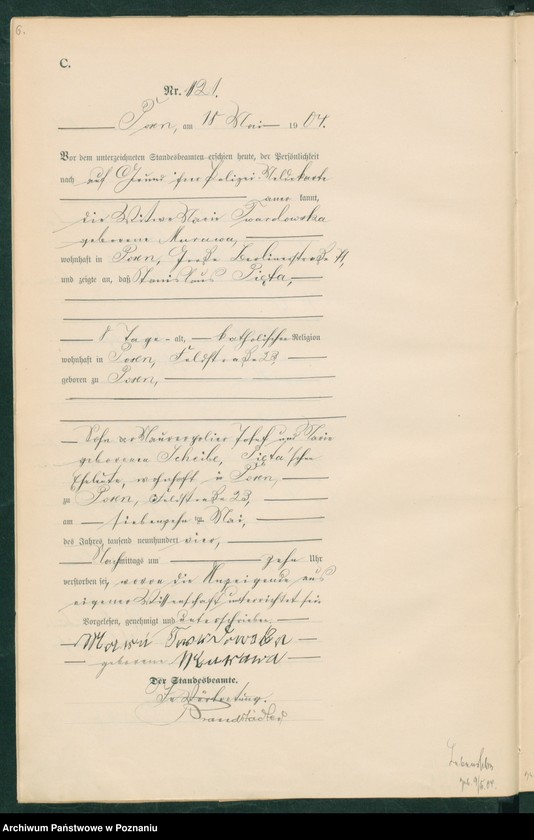 6.
C.
Nr. 121.
am 18 Mai 1904.
Vor dem unterzeichneten Standesbeamten erschien heute, der Persönlichkeit
nach auf Grund ihrer Polizei-Meldekarte
aner kannt,
die Witwe Marie Twardowska
geborene Murawa,
wohnhaft in Große Berlinerstraße
und zeigte an, daß Stanislaus Pięta,
8 Tage alt, katholischer Religion
wohnhaft in Feldstraße 23
geboren zu
Sohn der Maurerpolier Josef und Marie
geborene Scheibe, Pięta'schen
Eheleute, wohnhaft in
zu Feldstraße 23,
am siebenzehn Mai,
des Jahres tausend neunhundert vier,
Nachmittags um zehn Uhr
verstorben sei, wovon die Anzeigende aus
eigener Wissenschaft unterrichtet sei.
Vorgelesen, genehmigt und unterschrieben.
Maria Twardowska
geborene Murawa
Der Standesbeamte.
In Vertretung.
Brandstädter
Archiwum Państwowe w Poznaniu